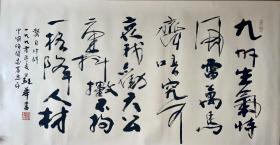 九州生氣恃
風雷萬馬
齊喑究可
哀我勸天公
重抖擻不拘
一格降人材